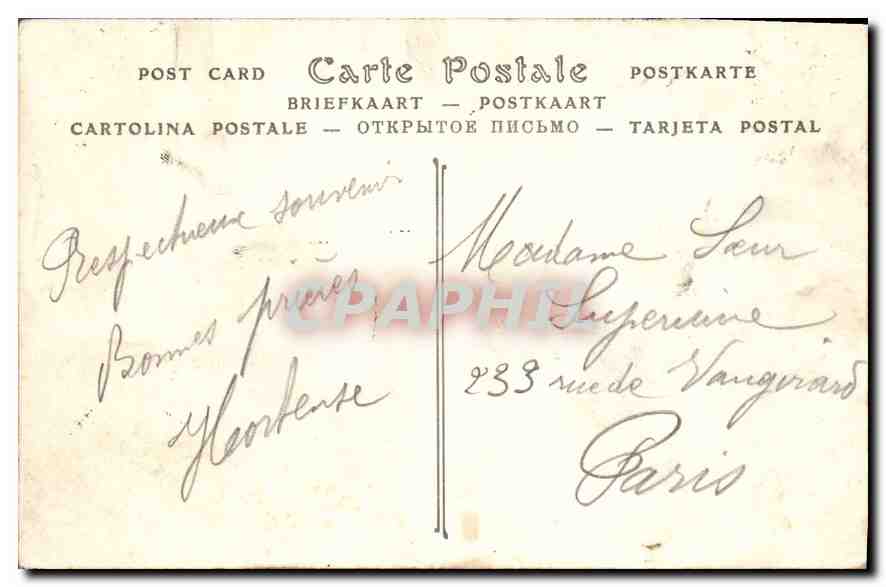 POST CARD Carte Postale POSTKARTE
BRIEFKAART — POSTKAART
CARTOLINA POSTALE — ОТКРЫТОЕ ПИСЬМО — TARJETA POSTAL
Respectueux souvenir
Bonnes prières
Hortense
Madame Sœur
Supérieure
233 rue de Vaugirard
Paris
CPAPHIL